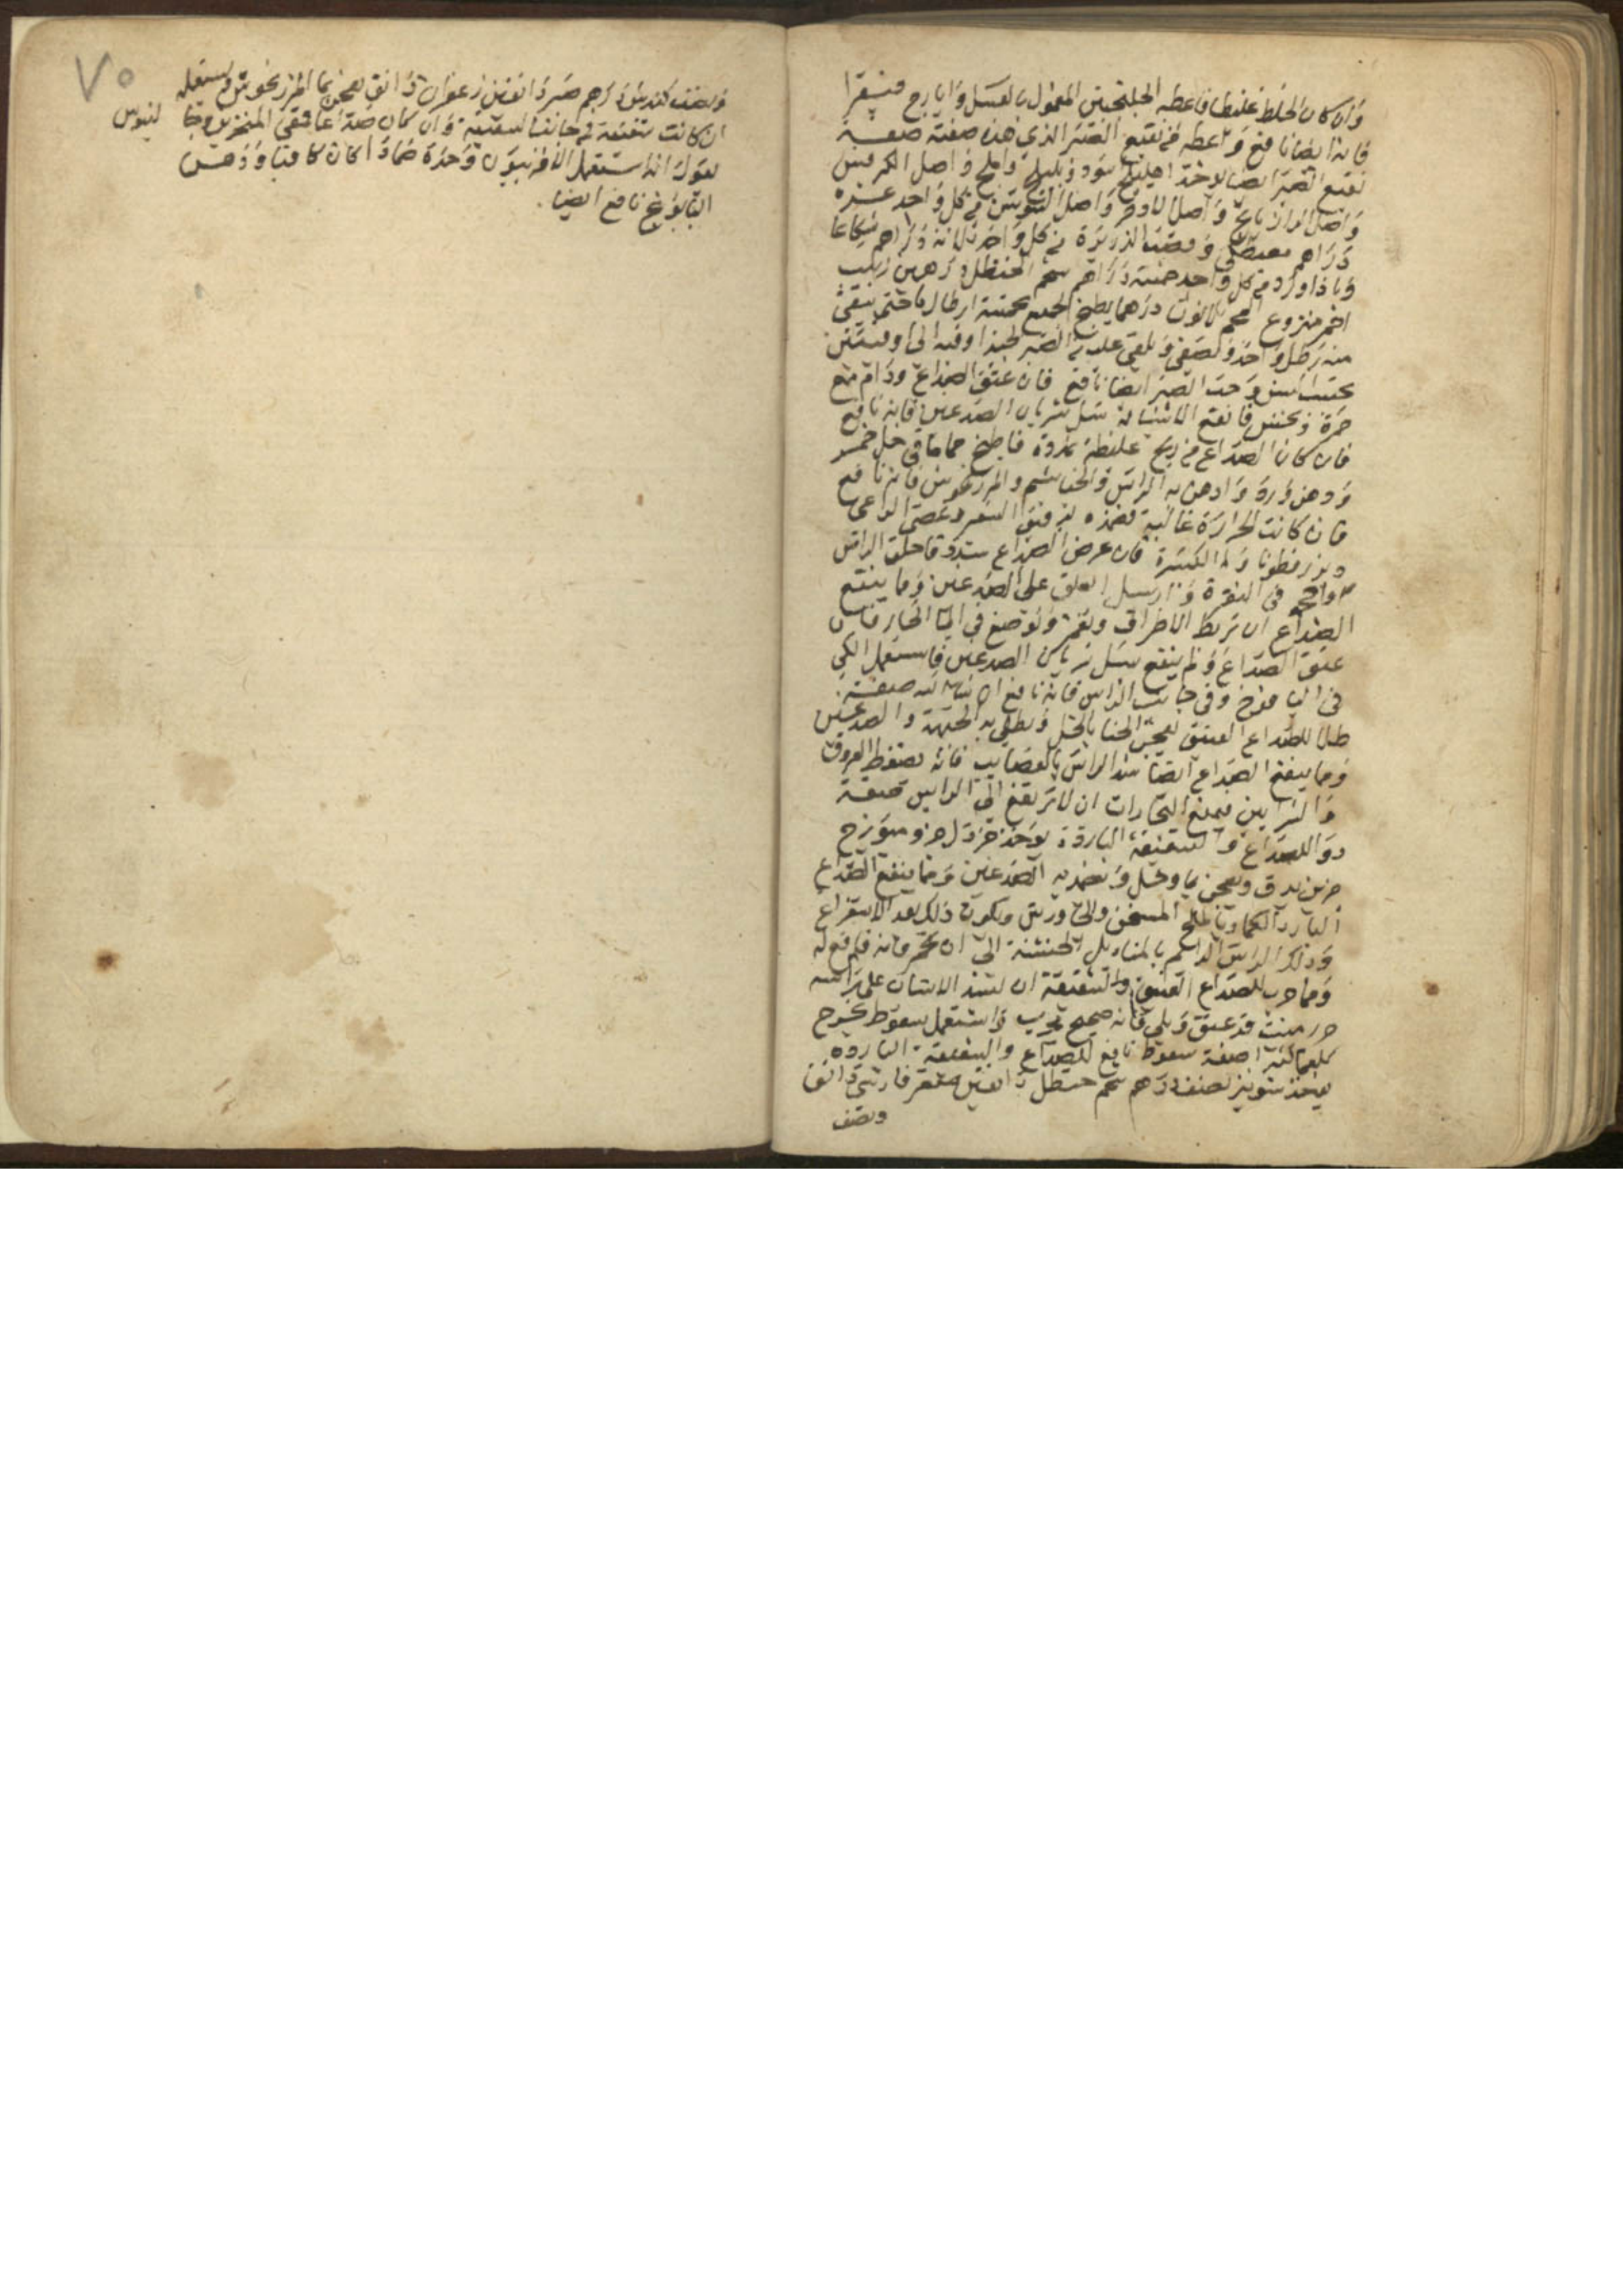 وان كان الخلط غليظا فاعطه الجلنجبين المعمول بالعسل وايارج فيقرا
فانه ايضا نافع واعطه من نقيع الصبر الذي هذه صفته صفة
نقيع الصبر ايضا يوخذ اهليلج اسود وبليلج واملج واصل الكرفس
واصل الرازيانج واصل الاذخر واصل السوس من كل واحد عشرة
دراهم مصطكي وقصب الذريرة من كل واحد ثلاثة دراهم شكاعا
وباذاورد من كل واحد خمسة دراهم شحم الحنظل درهمين زبيب
احمر منزوع العجم ثلاثون درهما يطبخ الجميع بخمسة ارطال ماء حتى يبقى
منه رطل واحد ويصفى ويلقى عليه من الصبر الجيد اوقيه الى اوقيتين
وحب الصبر ايضا نافع فان عتق الصداع ودام مع
حمرة ونخس فانفع الاشياء له سل شريان الصدغين فانه نافع
فان كان الصداع من ريح غليظة بارده فاطبخ حماما في خل خمر
ودهن ورد وادهن به الراس والخياشيم والمرزنجوش فانه نافع
فان كانت الحرارة غالبة فضمده بدقيق الشعير وعصى الراعي
وبزر قطونا وماء الكسبرة فان عرض الصداع بشدة فاحلق الراس
واحجم في النقرة وارسل العلق على الصدغين ومما ينفع
الصداع ان تربط الاطراف وتغمز وتوضع في الماء الحار فان
عتق الصداع ولم ينفع سل شريان الصدغين فاستعمل الكي
في اليافوخ وفي جانب الراس فانه نافع ان شاء الله صفة
طلا للصداع العتيق يعجن الحنا بالخل ويطلى به الجبهة والصدغين
ومما ينفع الصداع ايضا شد الراس بالعصايب فانه يضغط العروق
والشرايين فيمنع البخارات ان لا ترتفع الى الراس صفة
دوا للصداع والشقيقة الباردة يوخذ خردل جزو ميويزج
جزين يدق ويعجن بماء وخل ويضمد به الصدغين ومما ينفع الصداع
البارد الكماد بالملح المسخن والجاورس ويكون ذلك بعد الاستفراغ
ودلك الراس الدايم بالمناديل الخشنة الى ان يحمر فانه
ومما جرب للصداع العتيق والشقيقة ان يشد الانسان على راسه
قد عتق وبلي فانه صحيح مجرب واستعمل سعوط يخرج
بلغما كثيرا صفة سعوط نافع للصداع والشقيقة الباردة
يوخذ شونيز نصف درهم شحم حنظل دانقين صعتر فارسي دانق
ونصف
ونصف كندس درهم صبر دانقين زعفران دانق يعجن بماء المرزنجوش ويستعمله
ان كانت شقيقة في جانب الشقيقة وان كان صداعا ففي المنخرين وجالينوس
يقول انه استعمل الافربيون وحده ضمادا كان كافيا ودهن
البابونج نافع ايضا
٧٥